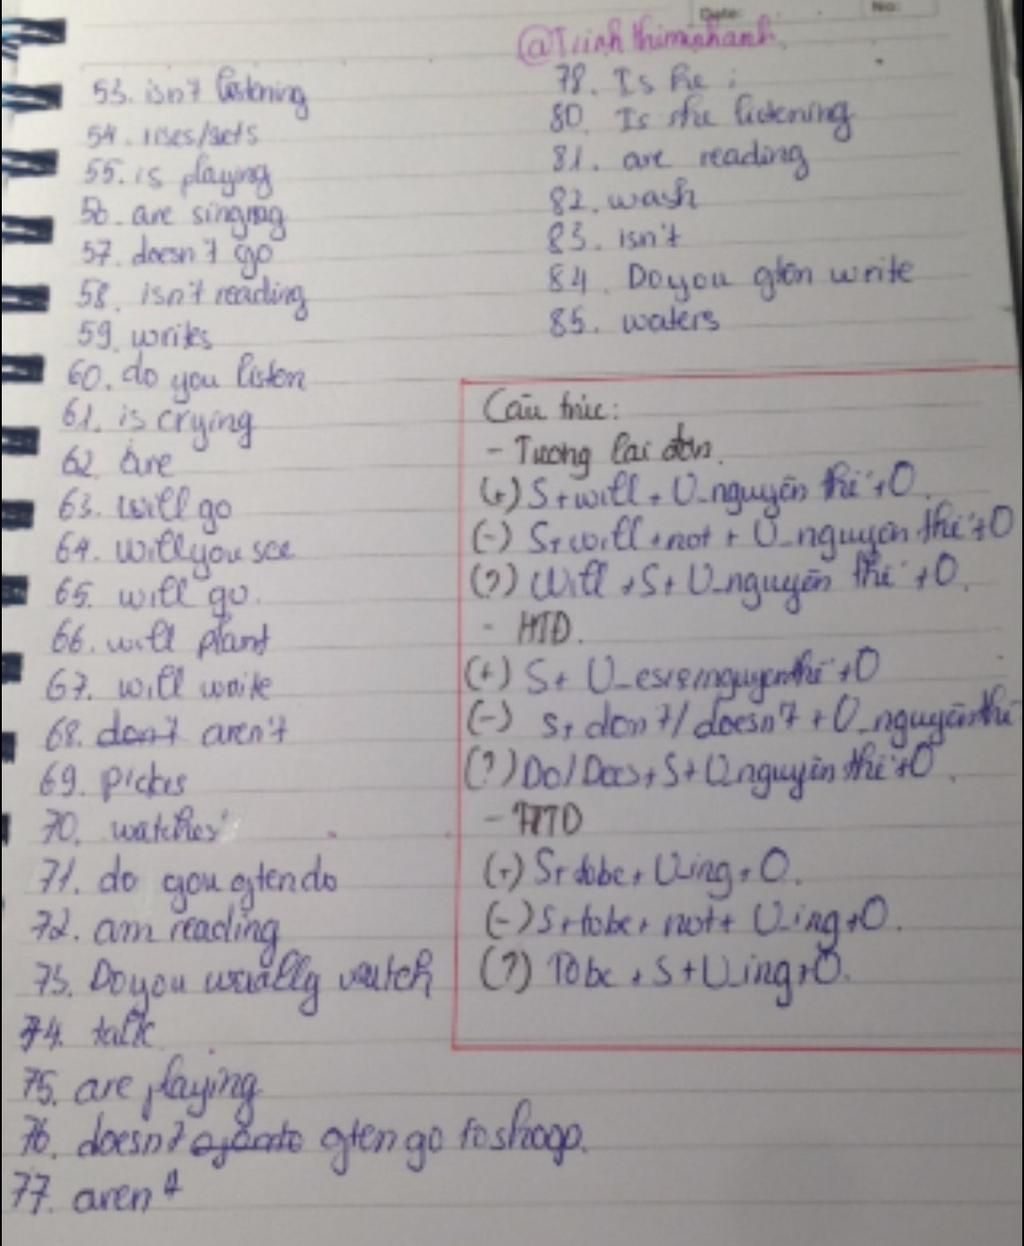 Date:
No:
@Trinhthiminhanh
53. isn't listening
54. rises/sets
55. is playing
56. are singing
57. doesn't go
58. isn't reading
59. writes
60. do you listen
61. is crying
62. are
63. will go
64. will you see
65. will go.
66. will plant
67. will write
68. don't aren't
69. pickes
70. watches
71. do you often do
72. am reading
73. Do you usually watch
74. talk
75. are playing
76. doesn't often go to shop.
77. aren't
78. Is he
80. Is she listening
81. are reading
82. wash
83. isn't
84. Do you often write
85. waters
Cấu trúc:
- Tương lai đơn.
(+) S+will+V_nguyên thể+O.
(-) S+will+not+V_nguyên thể+O
(?) Will+S+V_nguyên thể+O.
- HTĐ.
(+) S+V_es/s/nguyên thể+O
(-) S+don't/doesn't+V_nguyên thể
(?) Do/Does+S+V_nguyên thể+O.
- HTTD
(+) S+tobe+V_ing+O.
(-) S+tobe+not+V_ing+O.
(?) Tobe+S+V_ing+O.